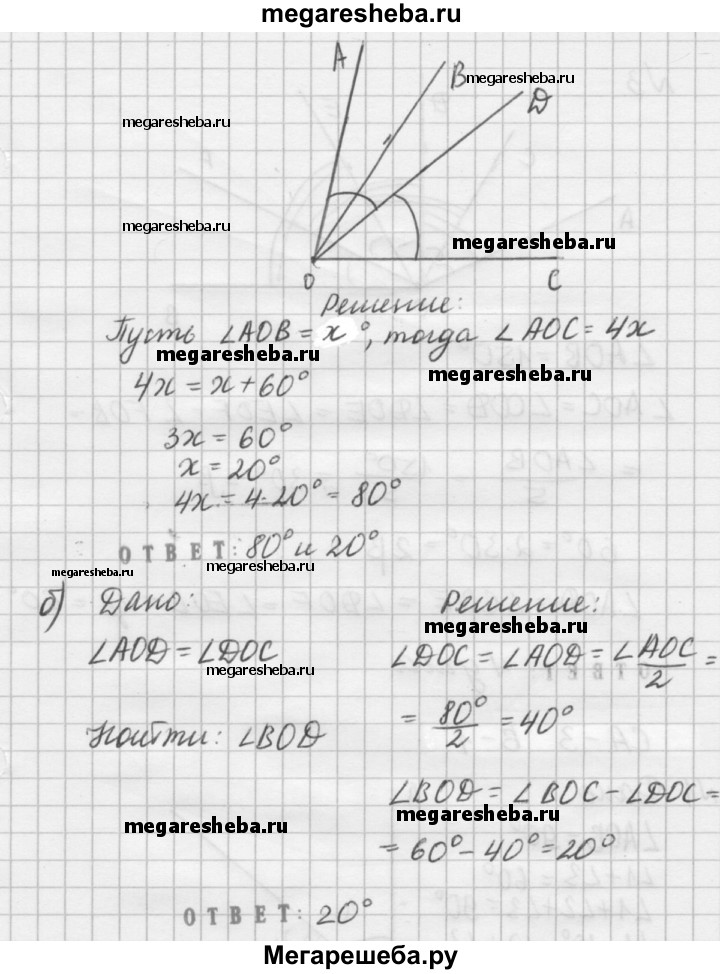 megaresheba.ru
A
B
megaresheba.ru
D
megaresheba.ru
megaresheba.ru
megaresheba.ru
O
C
Решение:
Пусть ∠AOB = x°, тогда ∠AOC = 4x
megaresheba.ru
megaresheba.ru
4x = x + 60°
3x = 60°
x = 20°
4x = 4·20° = 80°
ОТВЕТ: 80° и 20°
megaresheba.ru
megaresheba.ru
б) Дано:
Решение:
megaresheba.ru
∠AOD = ∠DOC
∠DOC = ∠AOD = ∠AOC/2 =
megaresheba.ru
= 80°/2 = 40°
Найти: ∠BOD
∠BOD = ∠BOC − ∠DOC =
megaresheba.ru
megaresheba.ru
= 60° − 40° = 20°
ОТВЕТ: 20°
Мегарешеба.ру